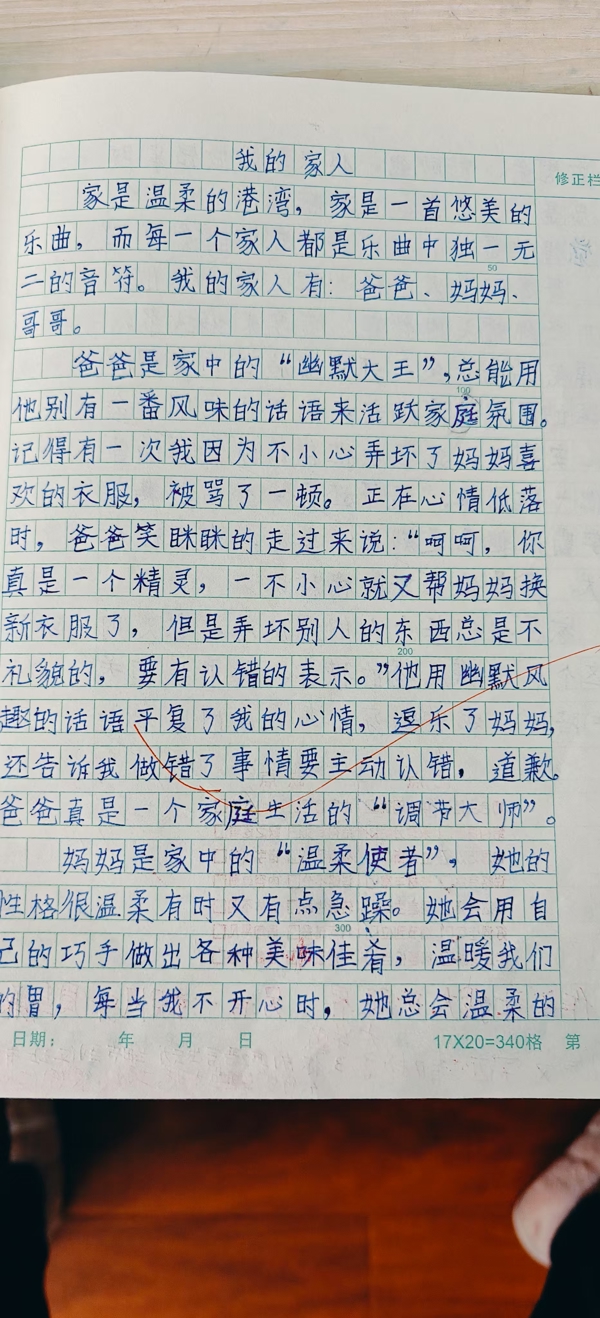 我的家人
修正栏
家是温柔的港湾，家是一首悠美的
乐曲，而每一个家人都是乐曲中独一无
50
二的音符。我的家人有：爸爸、妈妈、
哥哥。
爸爸是家中的“幽默大王”，总能用
100
他别有一番风味的话语来活跃家庭氛围。
记得有一次我因为不小心弄坏了妈妈喜
欢的衣服，被骂了一顿。正在心情低落
时，爸爸笑眯眯的走过来说：“呵呵，你
真是一个精灵，一不小心就又帮妈妈换
新衣服了，但是弄坏别人的东西总是不
200
礼貌的，要有认错的表示。”他用幽默风
趣的话语平复了我的心情，逗乐了妈妈，
还告诉我做错了事情要主动认错，道歉。
爸爸真是一个家庭生活的“调节大师”。
妈妈是家中的“温柔使者”，她的
性格很温柔有时又有点急躁。她会用自
300
己的巧手做出各种美味佳肴，温暖我们
的胃，每当我不开心时，她总会温柔的
日期： 年 月 日 17X20=340格 第